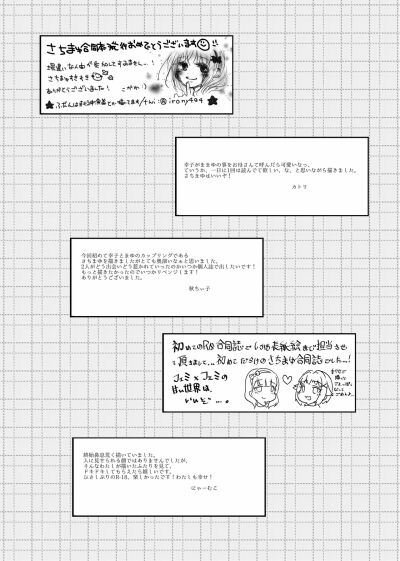 さちまゆ合同本発行おめでとうございます!!
場違いな人曲が参加してすみません…!
さちまゆすきすき
ありがとうございました!
irony404
幸子がままゆの事をお母さんて呼んだら可愛いなっ、
ていうか、一日に1回は読んでて欲しい、な、と思いながら描きました。
さちまゆはいいぞ!
カトリ
今回初めて幸子とまゆのカップリングである
さちまゆを描きましたがとても奥深いなぁと思いました。
2人がどう出会いどう惹かれていったのかいつか個人誌で出したいです!
もっと描きたかったのでいつかリベンジします!
ありがとうございました。
秋ちぃ子
初めてのR18合同誌で しかも表紙絵まで担当させ
て頂きまして… 初めてだらけのさちまゆ合同誌でした…!
世界は
いいぞ…。
終始鼻息荒く描いていました。
人に見せられる顔ではありませんでしたが、
そんなわたしが描いたふたりを見て、
ドキドキしてもらえたら嬉しいです。
ひさしぶりのR-18、楽しかったです!わたしも幸せ!
にゃーむこ